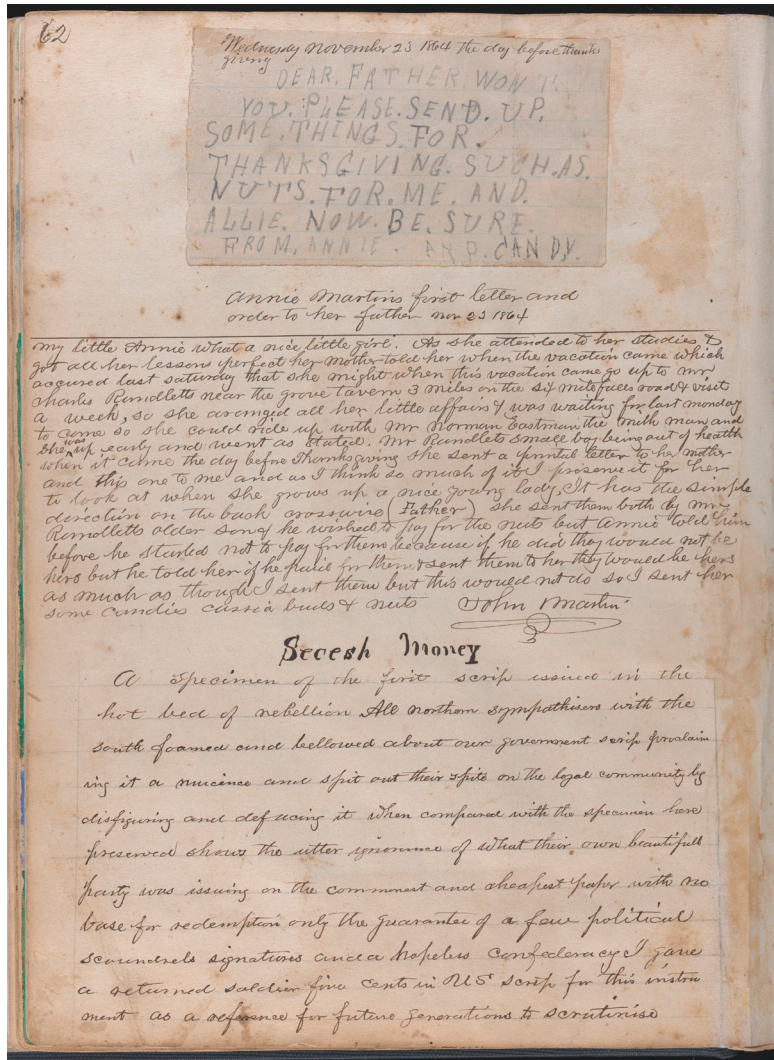 62
Wednesday november 23 1864 the day before thanks
giving
DEAR. FATHER. WON'T.
YOU. PLEASE. SEND. UP.
SOME. THINGS. FOR.
THANKSGIVING. SUCH. AS.
NUTS. FOR. ME. AND.
ALLIE. NOW. BE. SURE.
FROM. ANNIE. AND. CANDY.
Annie Martins first letter and
order to her father nov 23 1864
my little Annie what a nice little girl. As she attended to her studies &
got all her lessons perfect her mother told her when the vacation came which
accured last saturday that she might when this vacation came go up to mr
Charles Rundletts near the grove tavern 3 miles on the six mile falls road & visit
a week, so she aranged all her little affairs & was waiting for last monday
to come so she could ride up with mr Norman Eastman the milk man and
she was up early and went as stated. mr Rundlets small boy being out of health
when it came the day before Thanksgiving she sent a printed letter to her mother
and this one to me and as I think so much of it I preserve it for her
to look at when she grows up a nice young lady. It has the simple
direction on the back crosswise (Father) she sent them both by mr
Rundletts older son & he wished to pay for the nuts but Annie told him
before he started not to pay for them because if he did they would not be
hers but he told her if he paid for them & sent them to her they would be hers
as much as though I sent them but this would not do so I sent her
some candies cassia buds & nuts John Martin
Secesh Money
A specimen of the first scrip issued in the
hot bed of rebellion All northern sympathisers with the
south foamed and bellowed about our government scrip proclaim
ing it a nuicence and spit out their spite on the loyal community by
disfiguring and defacing it when compared with the specimen here
preserved shows the utter ignorance of what their own beautifull
party was issuing on the commonest and cheapest paper with no
base for redemption only the guarantee of a few political
scoundrels signatures and a hopeless confederacy I gave
a returned soldier five cents in US scrip for this instru
ment as a reference for future generations to scrutinise